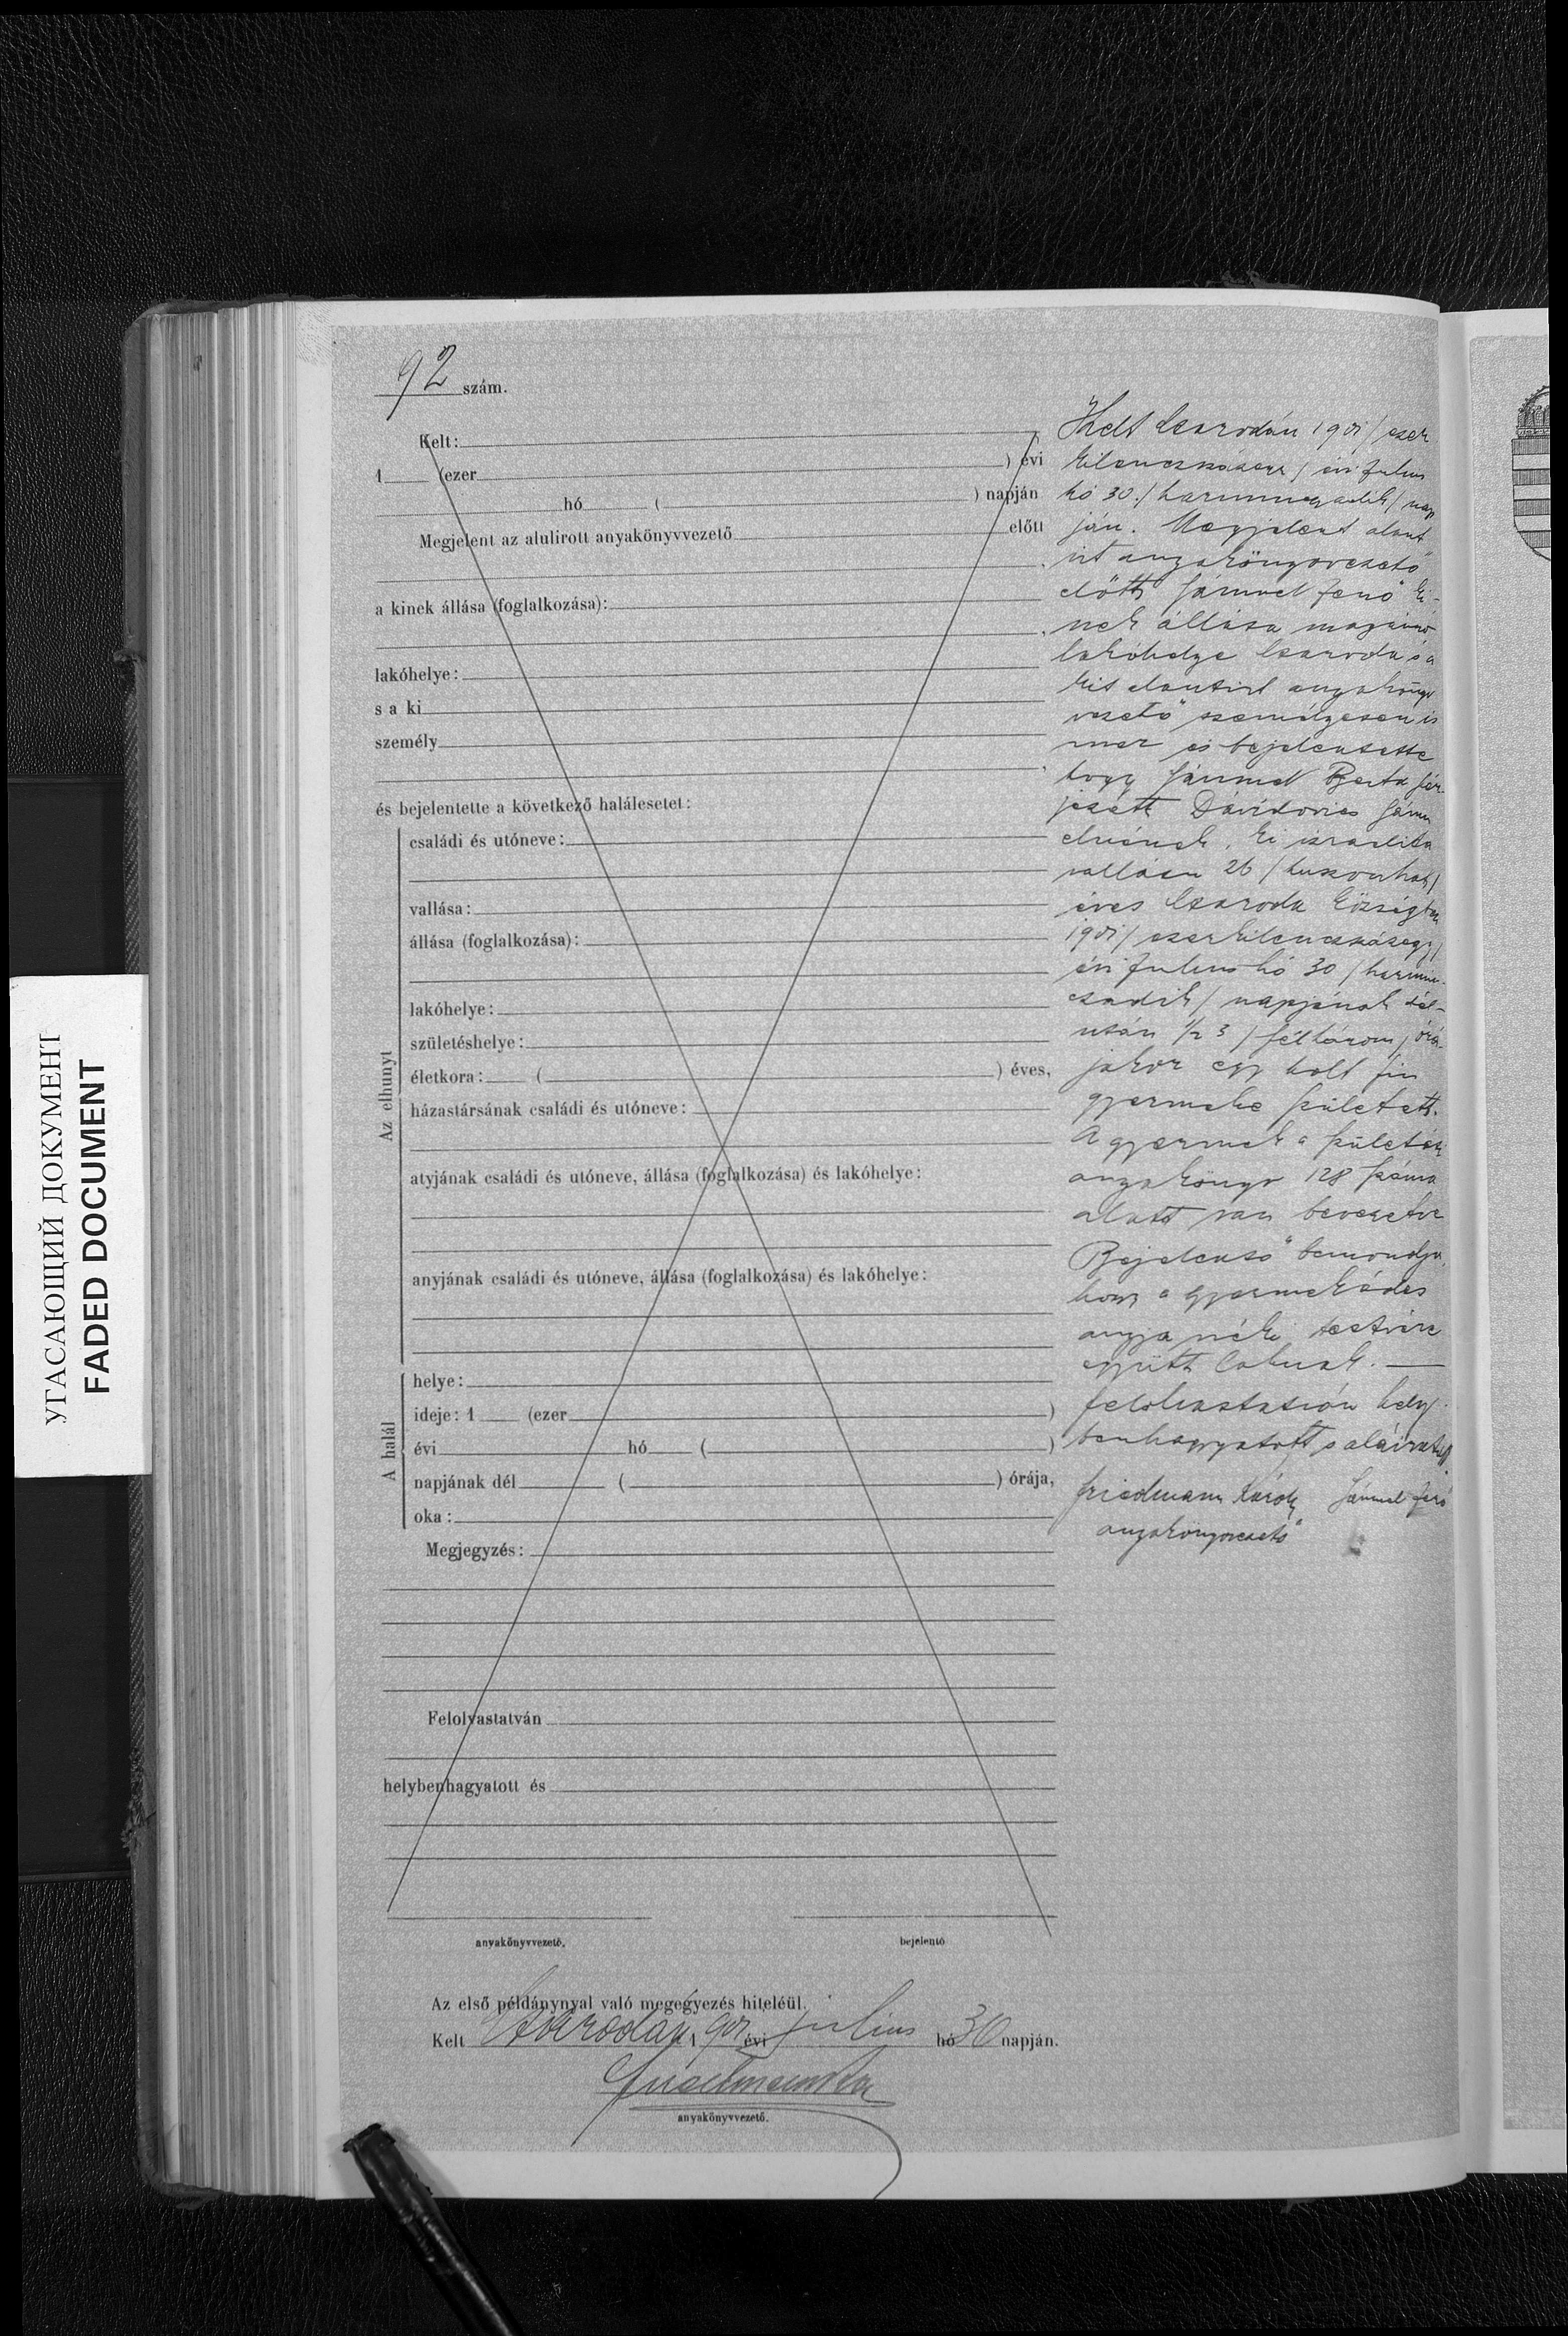 92 szám.
Kelt:
1 (ezer ) évi
hó ( ) napján
Megjelent az alulirott anyakönyvvezető előtt
a kinek állása (foglalkozása):
lakóhelye:
s a ki
személy
és bejelentette a következő halálesetet:
Az elhunyt
családi és utóneve:
vallása:
állása (foglalkozása):
lakóhelye:
születéshelye:
életkora: ( ) éves,
házastársának családi és utóneve:
atyjának családi és utóneve, állása (foglalkozása) és lakóhelye:
anyjának családi és utóneve, állása (foglalkozása) és lakóhelye:
A halál
helye:
ideje: 1 (ezer )
évi hó ( )
napjának dél ( ) órája,
oka:
Megjegyzés:
Felolvastatván
helybenhagyatott és
anyakönyvvezető.
bejelentő
Kelt Csarodán 1901 / ezer
kilenczszázegy / évi Julius
hó 30. / harminczadik / nap
ján. Megjelent alant
irt anyakönyvvezető
előtt Sámuel Jenő ki-
nek állása magánzó
lakóhelye Csaroda s a
kit alantirt anyakönyv
vezető személyesen is
mer és bejelentette
hogy Sámuel Berta fér-
jezett Dávidovics Sámu
elnének, ki izraelita
vallásu 26 / huszonhat /
éves Csaroda községben
1901 / ezerkilenczszázegy /
évi Julius hó 30 / harmin-
czadik / napjának dél-
után 1/2 3 / félhárom / órá-
jakor egy holt fiu
gyermeke született.
A gyermek a születési
anyakönyv 128 száma
alatt van bevezetve
Bejelentő bemondja,
hogy a gyermek édes
anyja néki testvére
együtt laknak. —
Felolvastatván hely-
benhagyatott s aláiratott.
Friedmann Károly Sámuel Jenő
anyakönyvvezető
Az első példánynyal való megegyezés hiteléül.
Kelt Csarodán, 1901 évi julius hó 30 napján.
anyakönyvvezető.
УГАСАЮЩИЙ ДОКУМЕНТ
FADED DOCUMENT